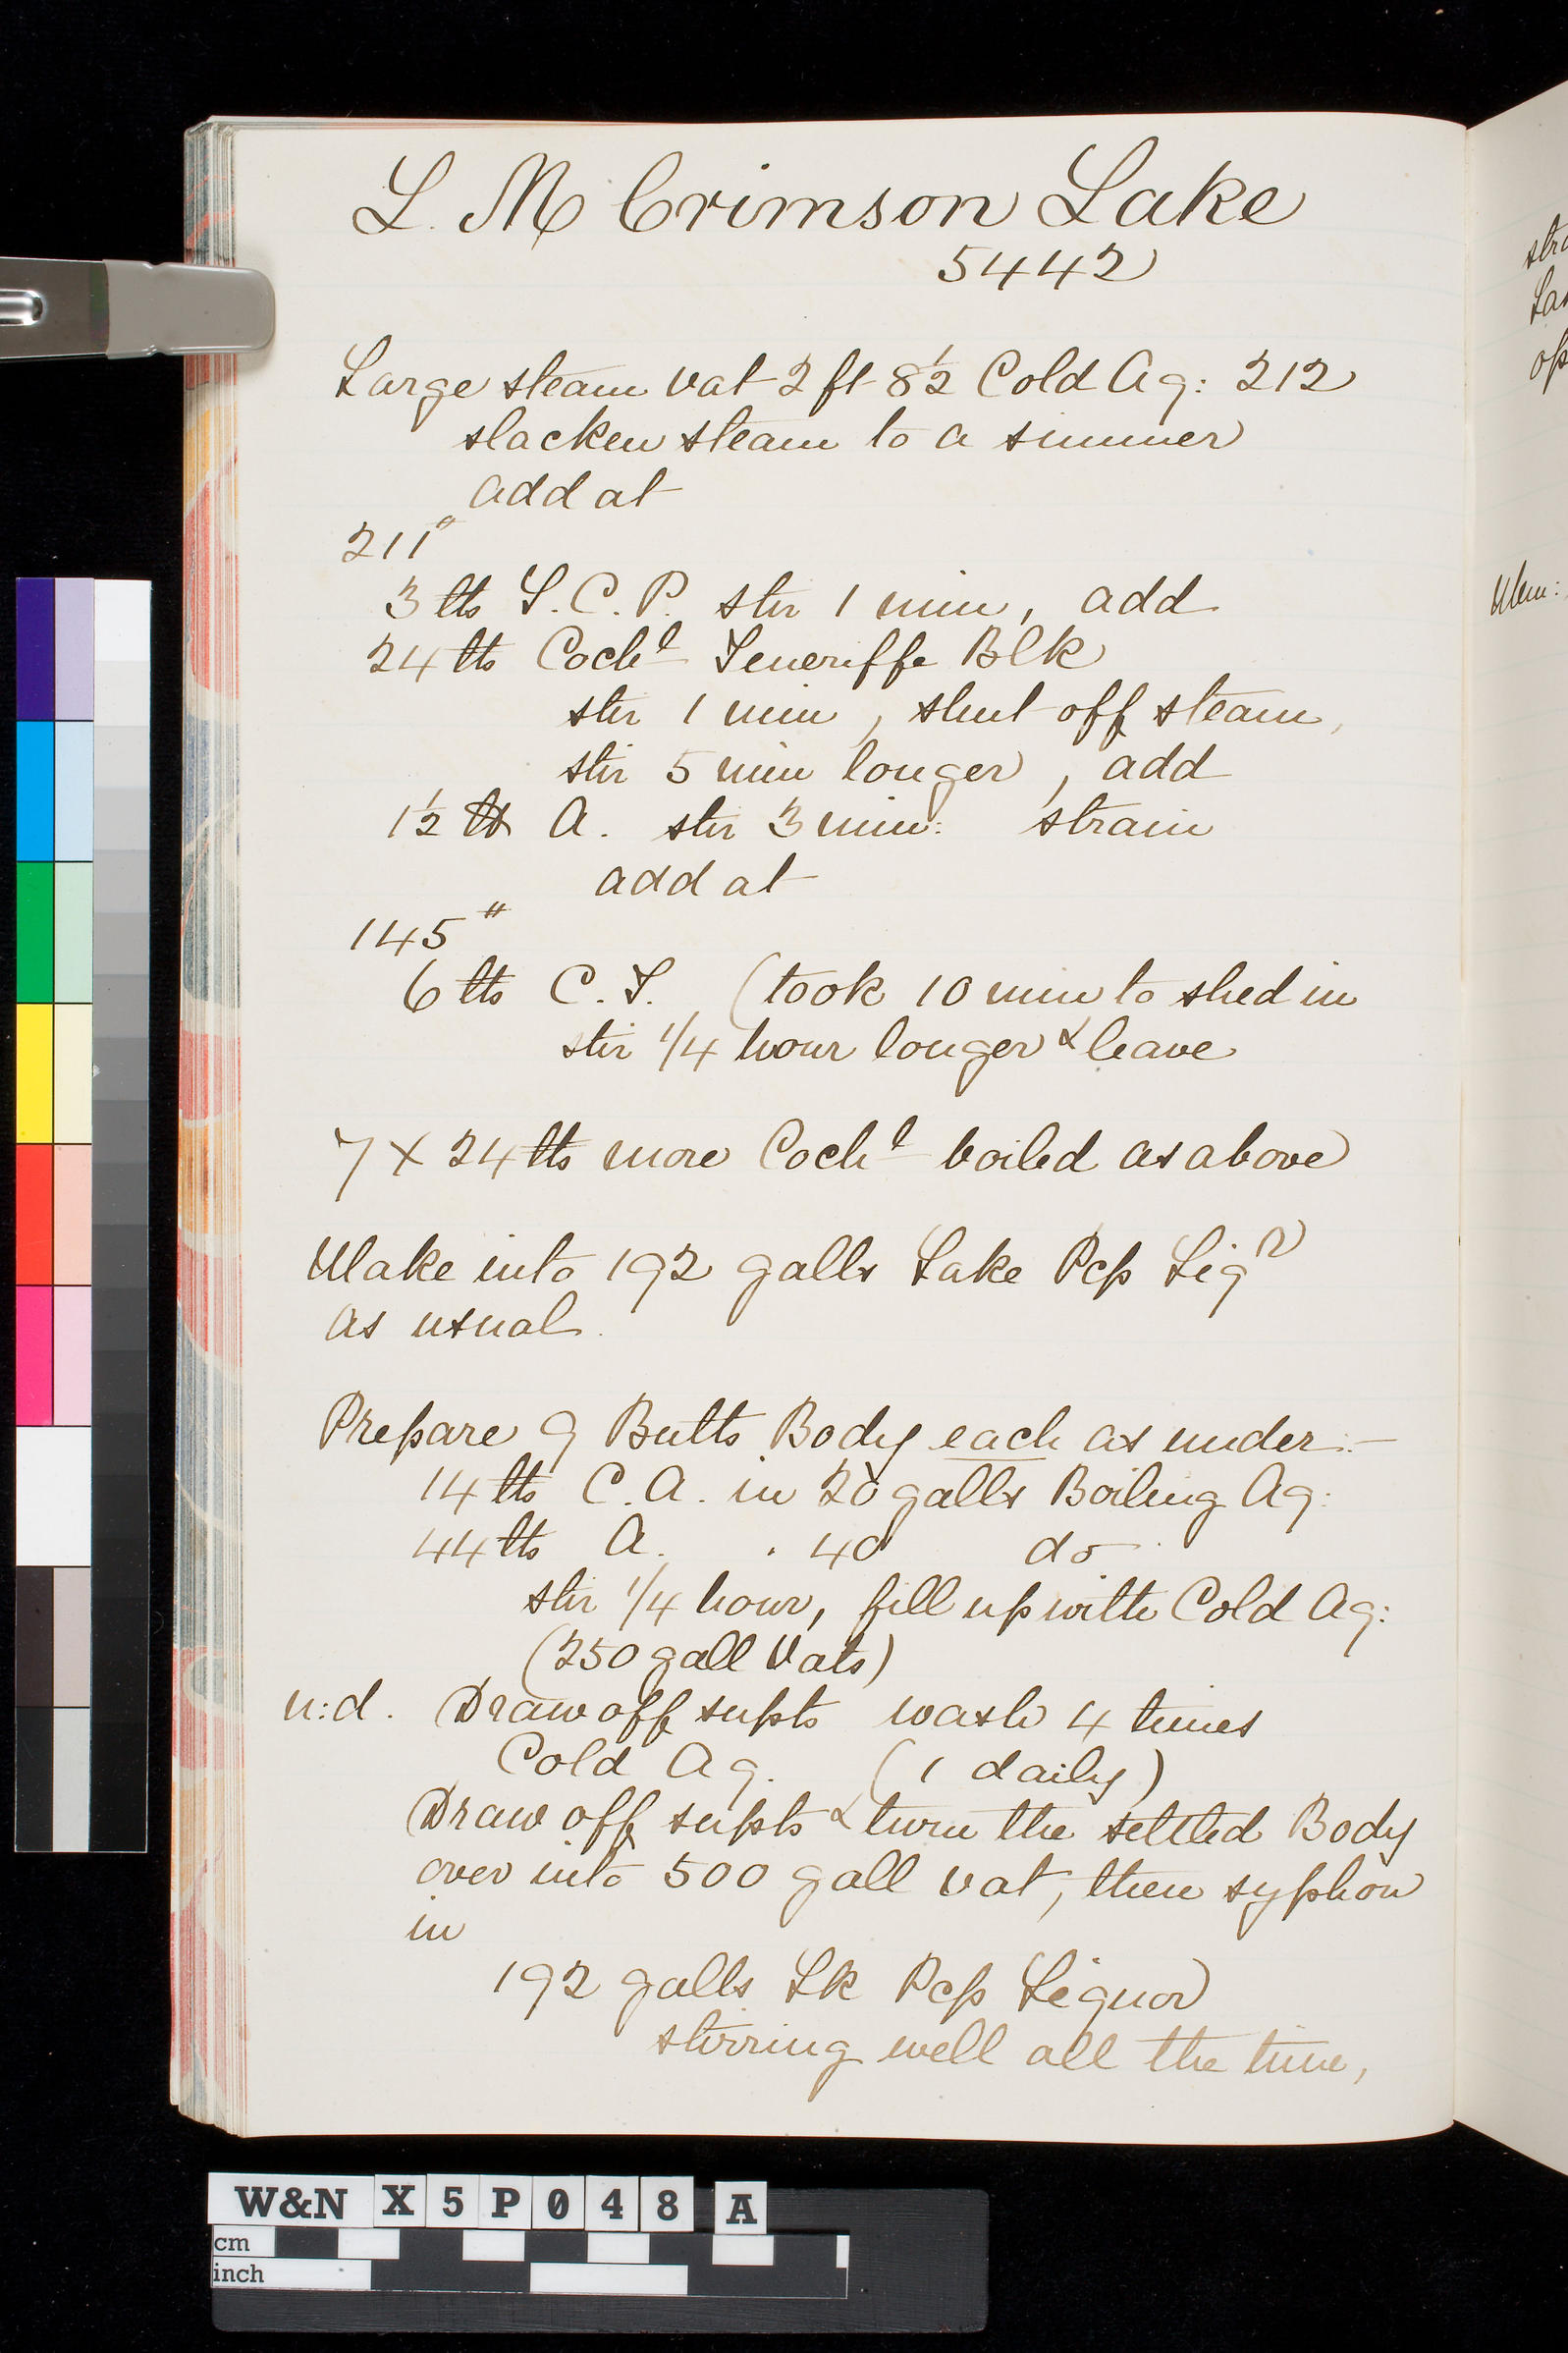 L. M Crimson Lake
5442
Large steam vat 2 ft 8½ Cold Aq: 212
slacken steam to a simmer
add at
211"
3 lbs S.C.P. stir 1 min, add
24 lbs Cochl Teneriffe Blk
stir 1 min, shut off steam,
stir 5 min longer, add
1½ lb A. stir 3 min: strain
add at
145"
6 lbs C.S. (took 10 min to shed in
stir 1/4 hour longer & leave
7 x 24 lbs more Cochl boiled as above
Make into 192 galls Lake Pcp Liqr
as usual.
Prepare 9 Butts Body each as under:-
14 lbs C.A. in 20 galls Boiling Aq:
44 lbs A. . 40 do
stir 1/4 hour, fill up with Cold Aq:
(250 gall Vats)
n:d. Draw off supts wash 4 times
Cold Aq. (1 daily)
Draw off supts & turn the settled Body
over into 500 gall vat, then syphon
in
192 galls Lk Pcp Liquor
stirring well all the time,
Mem:
W&N X5P048 A
cm
inch